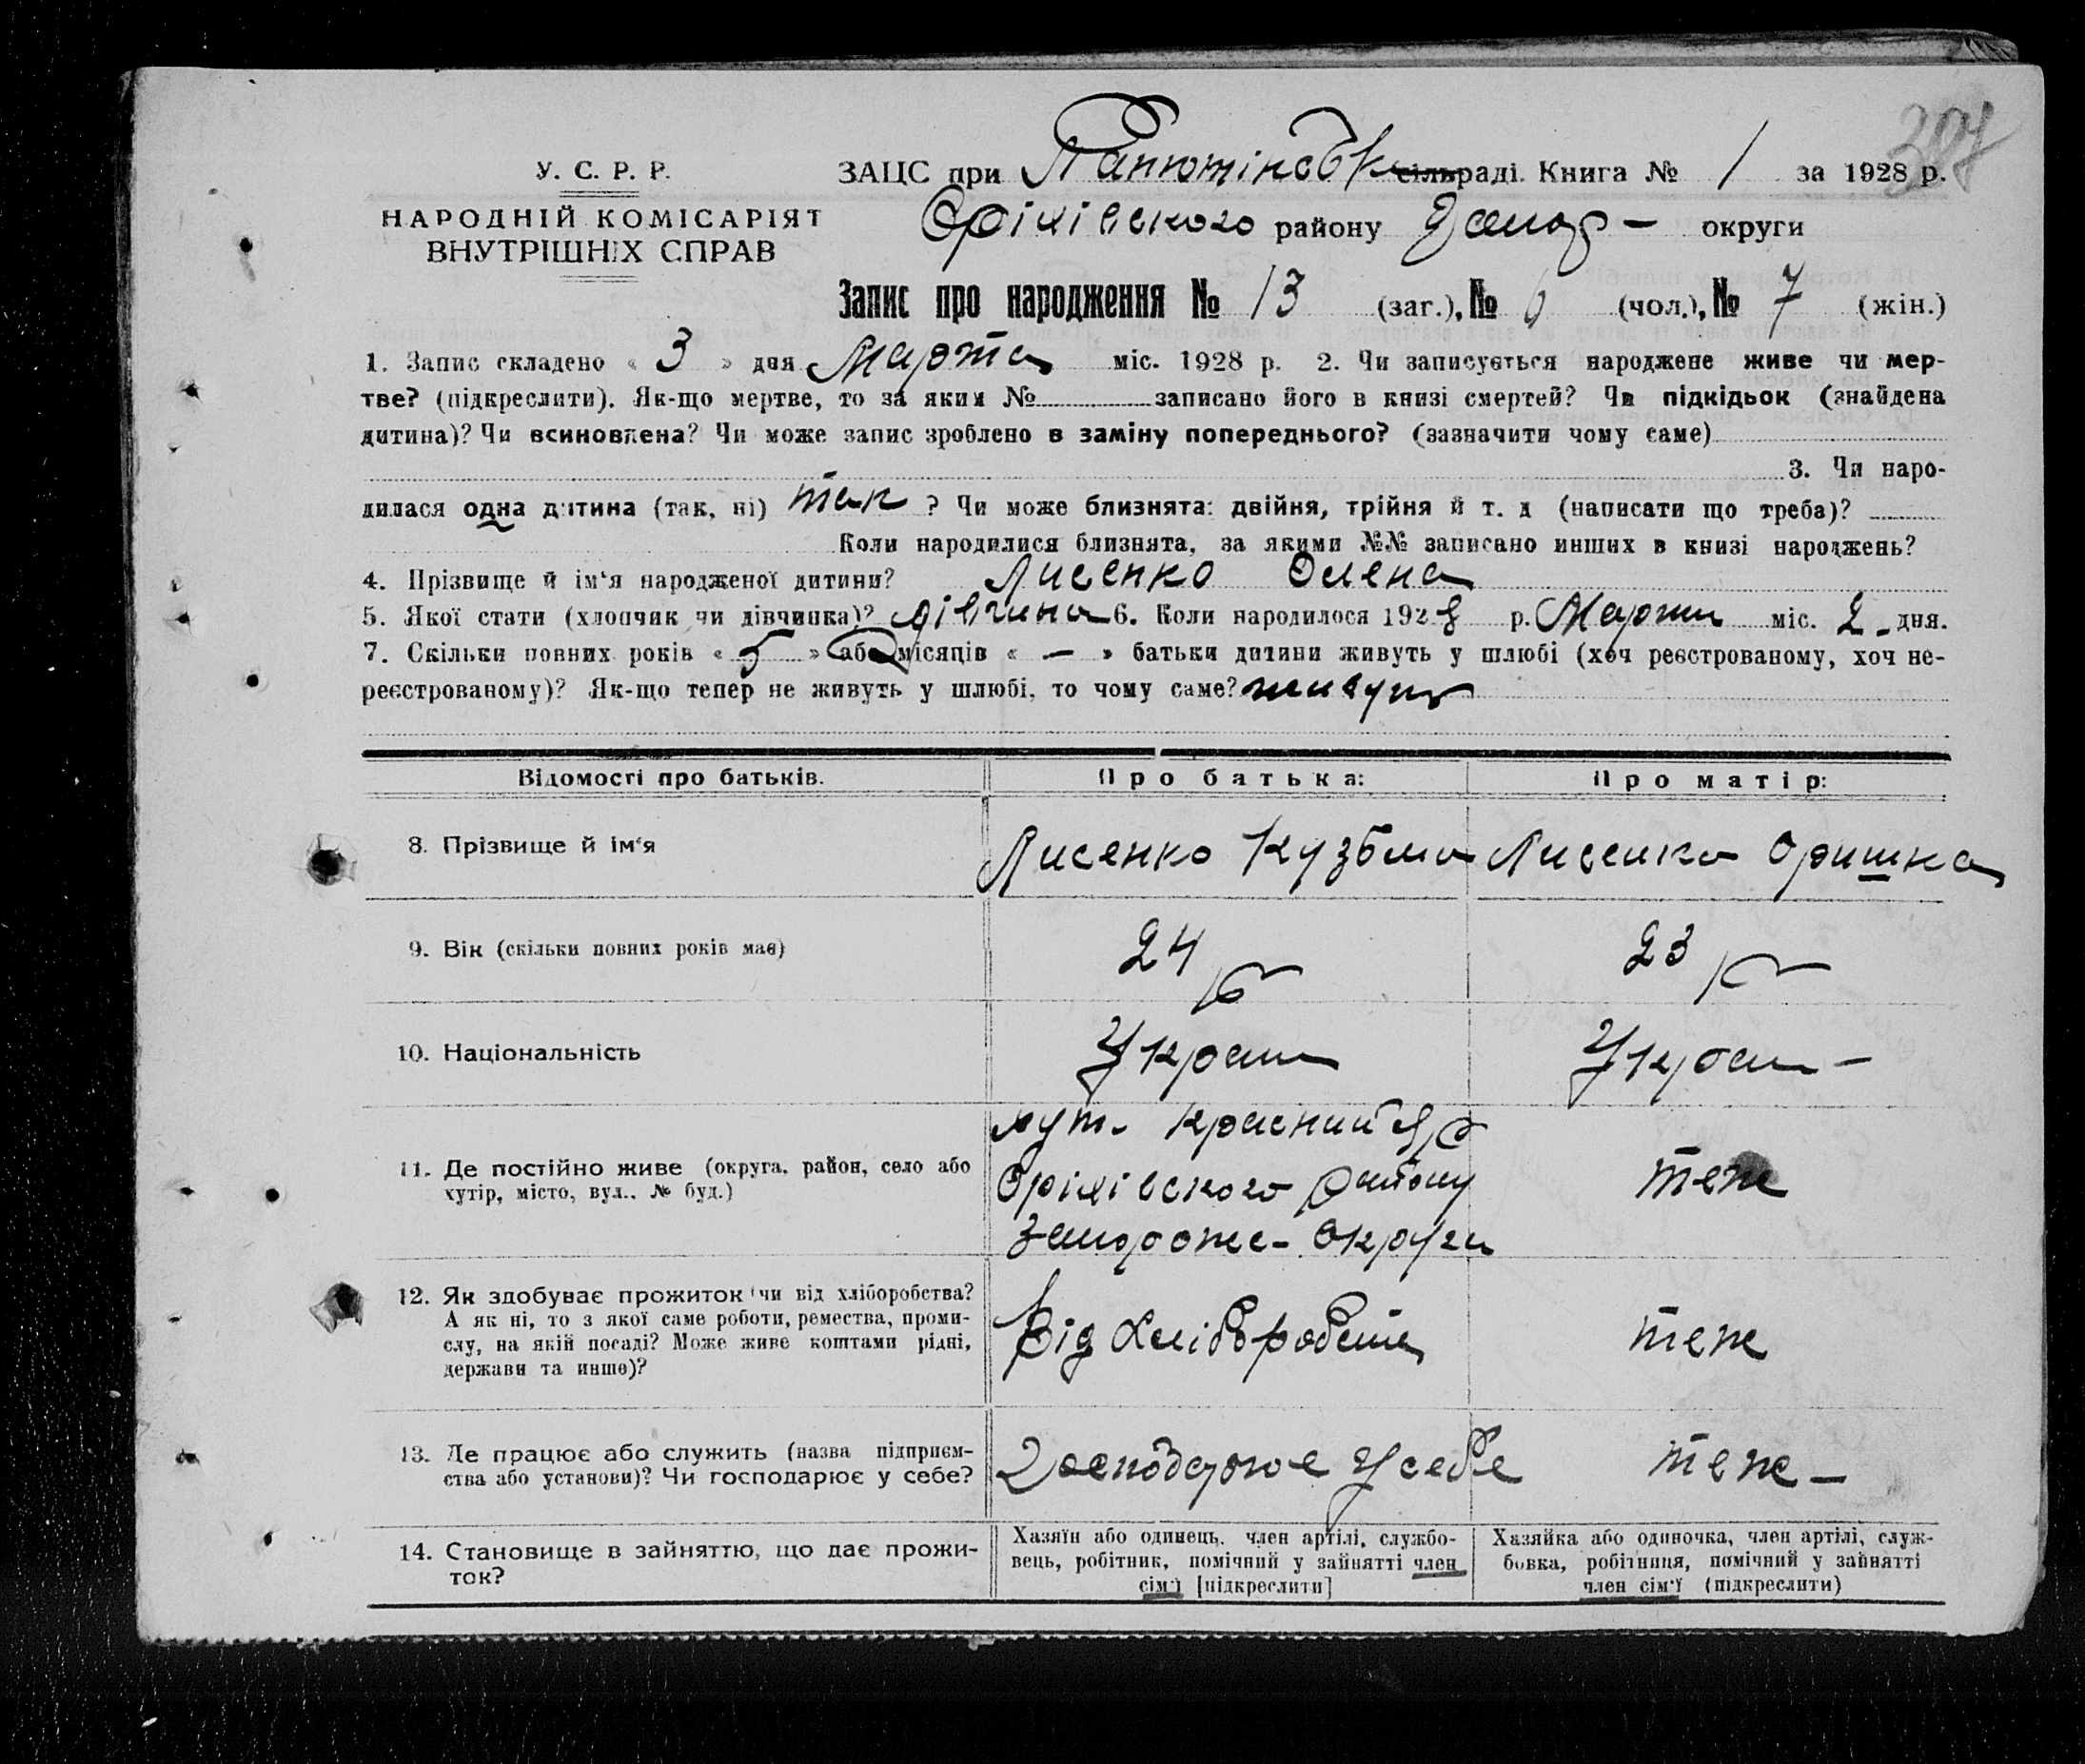 307
У. С. Р. Р.
НАРОДНІЙ КОМІСАРІЯТ
ВНУТРІШНІХ СПРАВ
ЗАЦС при Панютінськ сільраді. Книга № 1 за 1928 р.
Оріхівського району Запор – округи
Запис про народження № 13 (заг.), № 6 (чол.), № 7 (жін.)
1. Запис складено « 3 » дня Марта міс. 1928 р. 2. Чи записується народжене живе чи мер-
тве? (підкреслити). Як-що мертве, то за яким № записано його в книзі смертей? Чи підкідьок (знайдена
дитина)? Чи всиновлена? Чи може запис зроблено в заміну попереднього? (зазначити чому саме)
3. Чи наро-
дилася одна дитина (так, ні) так ? Чи може близнята: двійня, трійня й т. д (написати що треба)?
Коли народилися близнята, за якими №№ записано инших в книзі народжень?
4. Прізвище й ім'я народженої дитини? Лисенко Олена
5. Якої стати (хлопчик чи дівчинка)? дівчина 6. Коли народилося 1928 р. Марта міс. 2 – дня.
7. Скільки повних років « 5 » або місяців « — » батьки дитини живуть у шлюбі (хоч реєстрованому, хоч не-
реєстрованому)? Як-що тепер не живуть у шлюбі, то чому саме? живуть
Відомості про батьків. Про батька: Про матір:
8. Прізвище й ім'я Лисенко Кузьма Лисенко Оришка
9. Вік (скільки повних років має) 24 23
10. Національність Украин Украин –
11. Де постійно живе (округа, район, село або
хутір, місто, вул., № буд.)
хут. Красний Яр
Оріхівського району
Запороже- Округи
теж
12. Як здобуває прожиток (чи від хліборобства?
А як ні, то з якої саме роботи, ремества, проми-
слу, на якій посаді? Може живе коштами рідні,
держави та инше)?
Від Хліборобства
теж
13. Де працює або служить (назва підприєм-
ства або установи)? Чи господарює у себе?
Господарює У себе
теж –
14. Становище в зайняттю, що дає прожи-
ток?
Хазяїн або одинець, член артілі, службо-
вець, робітник, помічний у зайнятті член
сім'ї [підкреслити]
Хазяйка або одиночка, член артілі, служ-
бовка, робітниця, помічний у зайнятті
член сім'ї (підкреслити)